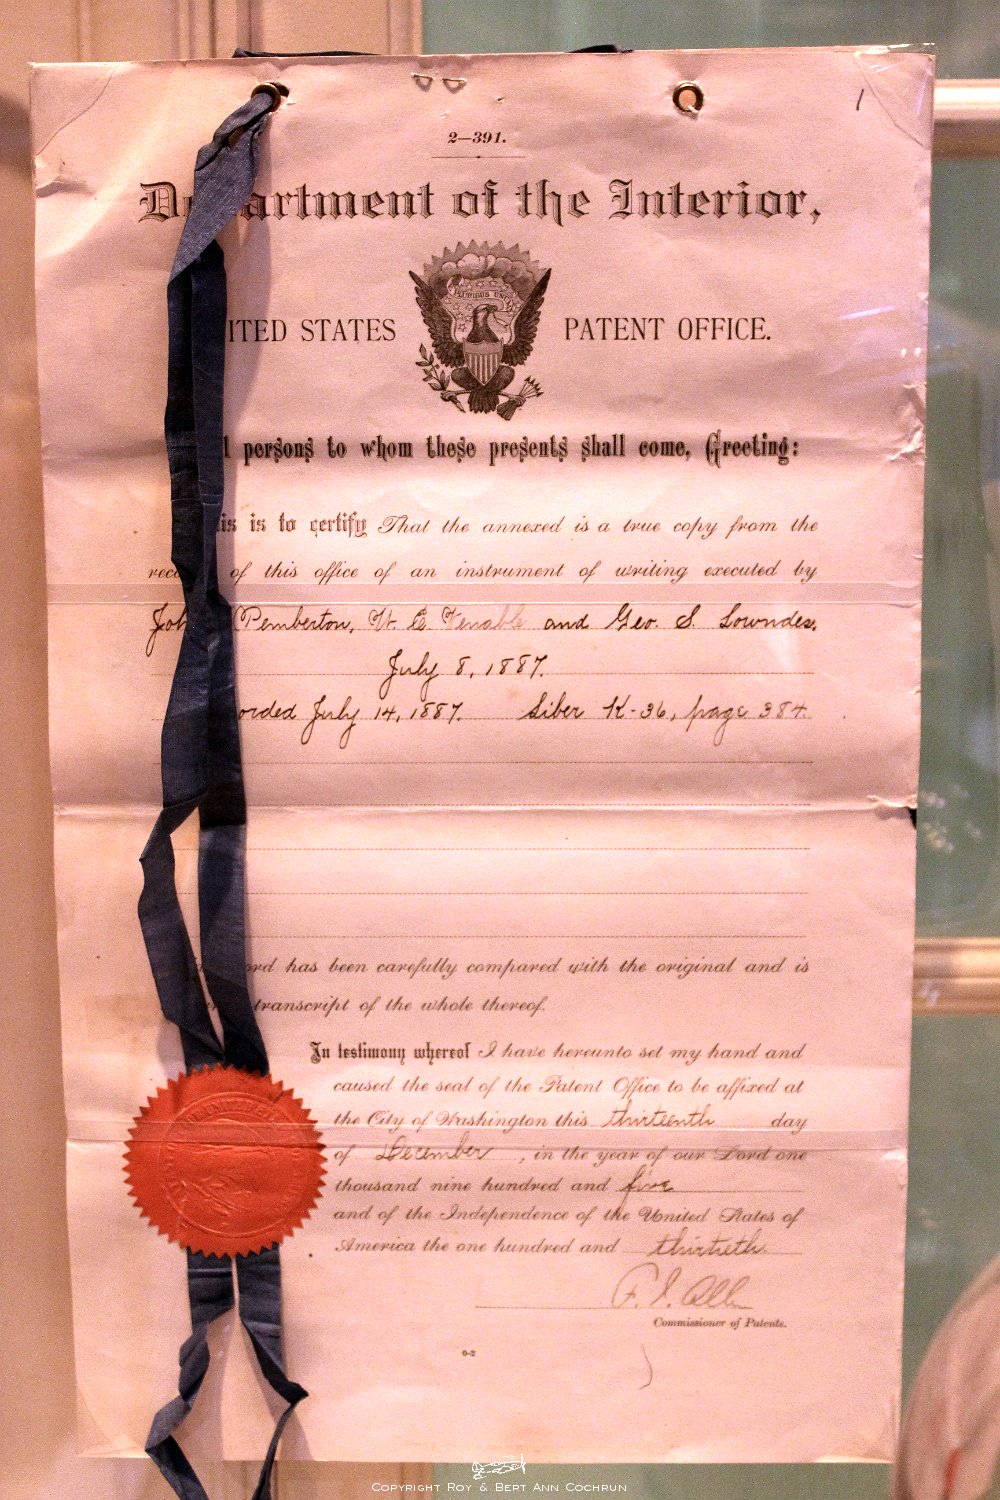 1
2—391.
Department of the Interior,
UNITED STATES PATENT OFFICE.
persons to whom these presents shall come, Greeting:
This is to certify That the annexed is a true copy from the
of this office of an instrument of writing executed by
Pemberton, W. E. Venable and Geo. S. Lowndes,
July 8, 1887.
orded July 14, 1887. Liber K-36, page 384.
ord has been carefully compared with the original and is
transcript of the whole thereof.
In testimony whereof I have hereunto set my hand and
caused the seal of the Patent Office to be affixed at
the City of Washington this thirteenth day
of December, in the year of our Lord one
thousand nine hundred and five
and of the Independence of the United States of
America the one hundred and thirtieth.
F. I. Allen
Commissioner of Patents.
0-2
Copyright Roy & Bert Ann Cochrun